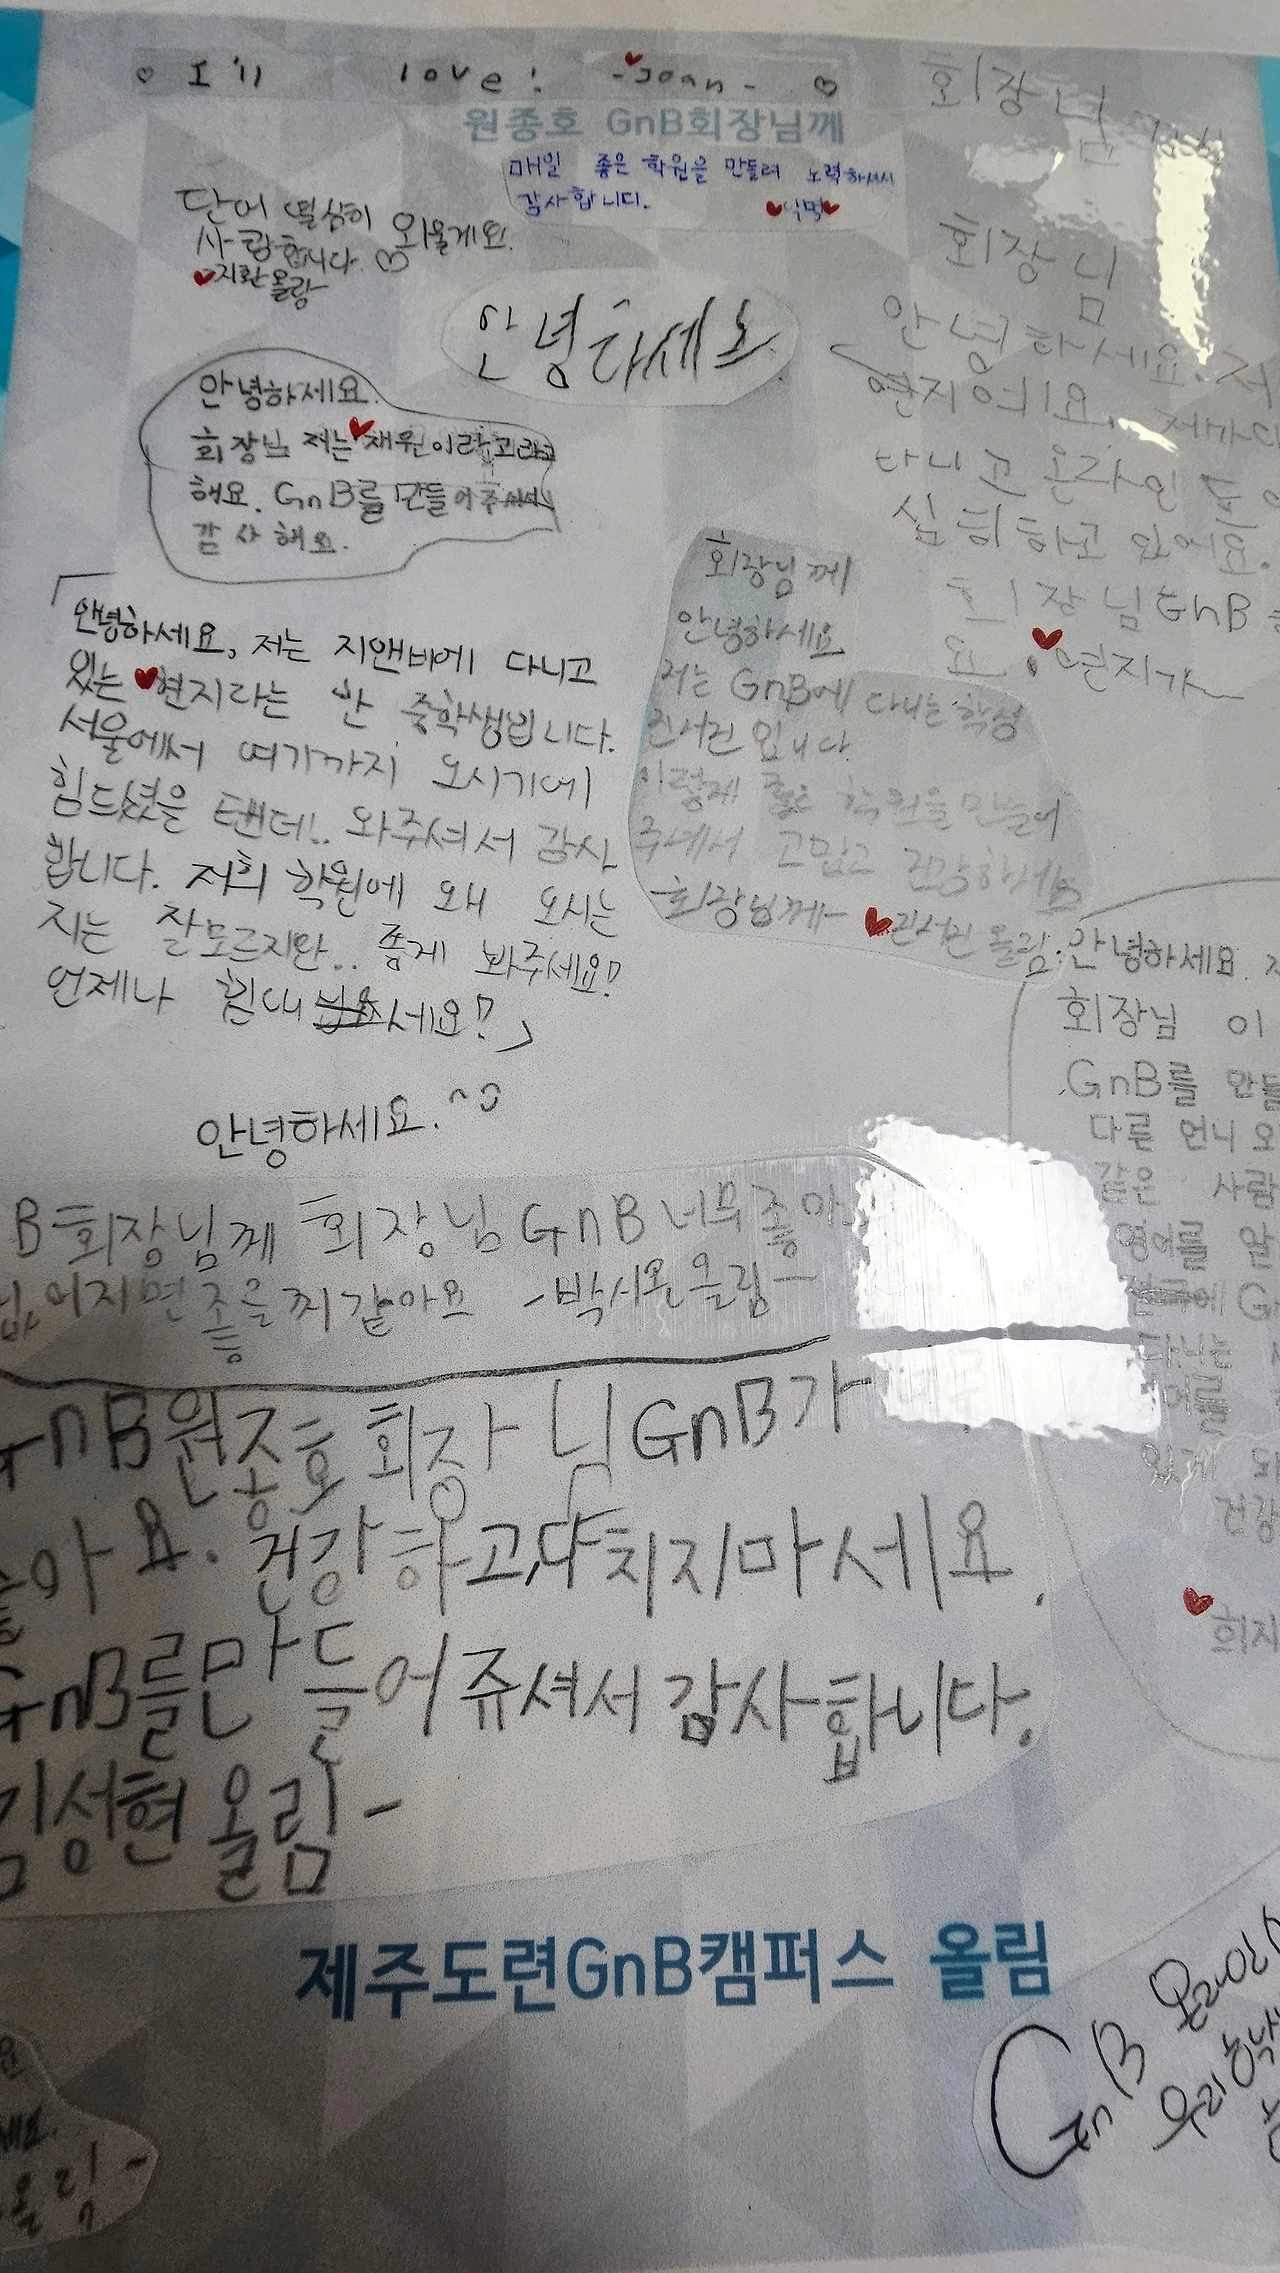 I'll love! -Joan-
원종호 GnB회장님께
매일 좋은 학원을 만들려 노력하셔서
감사합니다. 익명
단어 열심히 외울게요.
사랑합니다
지환올림
안녕하세요
안녕하세요.
회장님 저는 채원이라고
해요. GnB를 만들어주셔서
감사해요.
회장님
회장님
안녕하세요. 저
연지예요. 제가
다니고 온라인
심히하고 있어요.
회장님 GnB
요. 연지가
안녕하세요, 저는 지앤비에 다니고
있는 현지라는 반 중학생입니다.
서울에서 여기까지 오시기에
힘드셨을 탠데!.. 와주셔서 감사
합니다. 저희 학원에 왜 오시는
지는 잘모르지만.. 좋게 봐주세요!
언제나 힘내세요!
회장님께
안녕하세요
저는 GnB에 다니는 학생
진서진 입니다.
이렇게 좋은 학원을 만들어
주셔서 고맙고 건강하세요
회장님께- 진서진 올림.
안녕하세요.
회장님 이
GnB를 만들
다른 언니 오
같은 사람
영어를 알
에 G
다니는
어를
있게 되
건강
희지
안녕하세요.^^
B회장님께 회장님 GnB 너무좋아
없어지면 좋을찌같아요 -박시온올림-
GnB원종호회장님 GnB가
좋아요. 건강하고,다치지마세요.
GnB를만들어쥬셔서감사합니다.
김성현 올림-
제주도련GnB캠퍼스 올림
GnB 온라인
우리
올림-